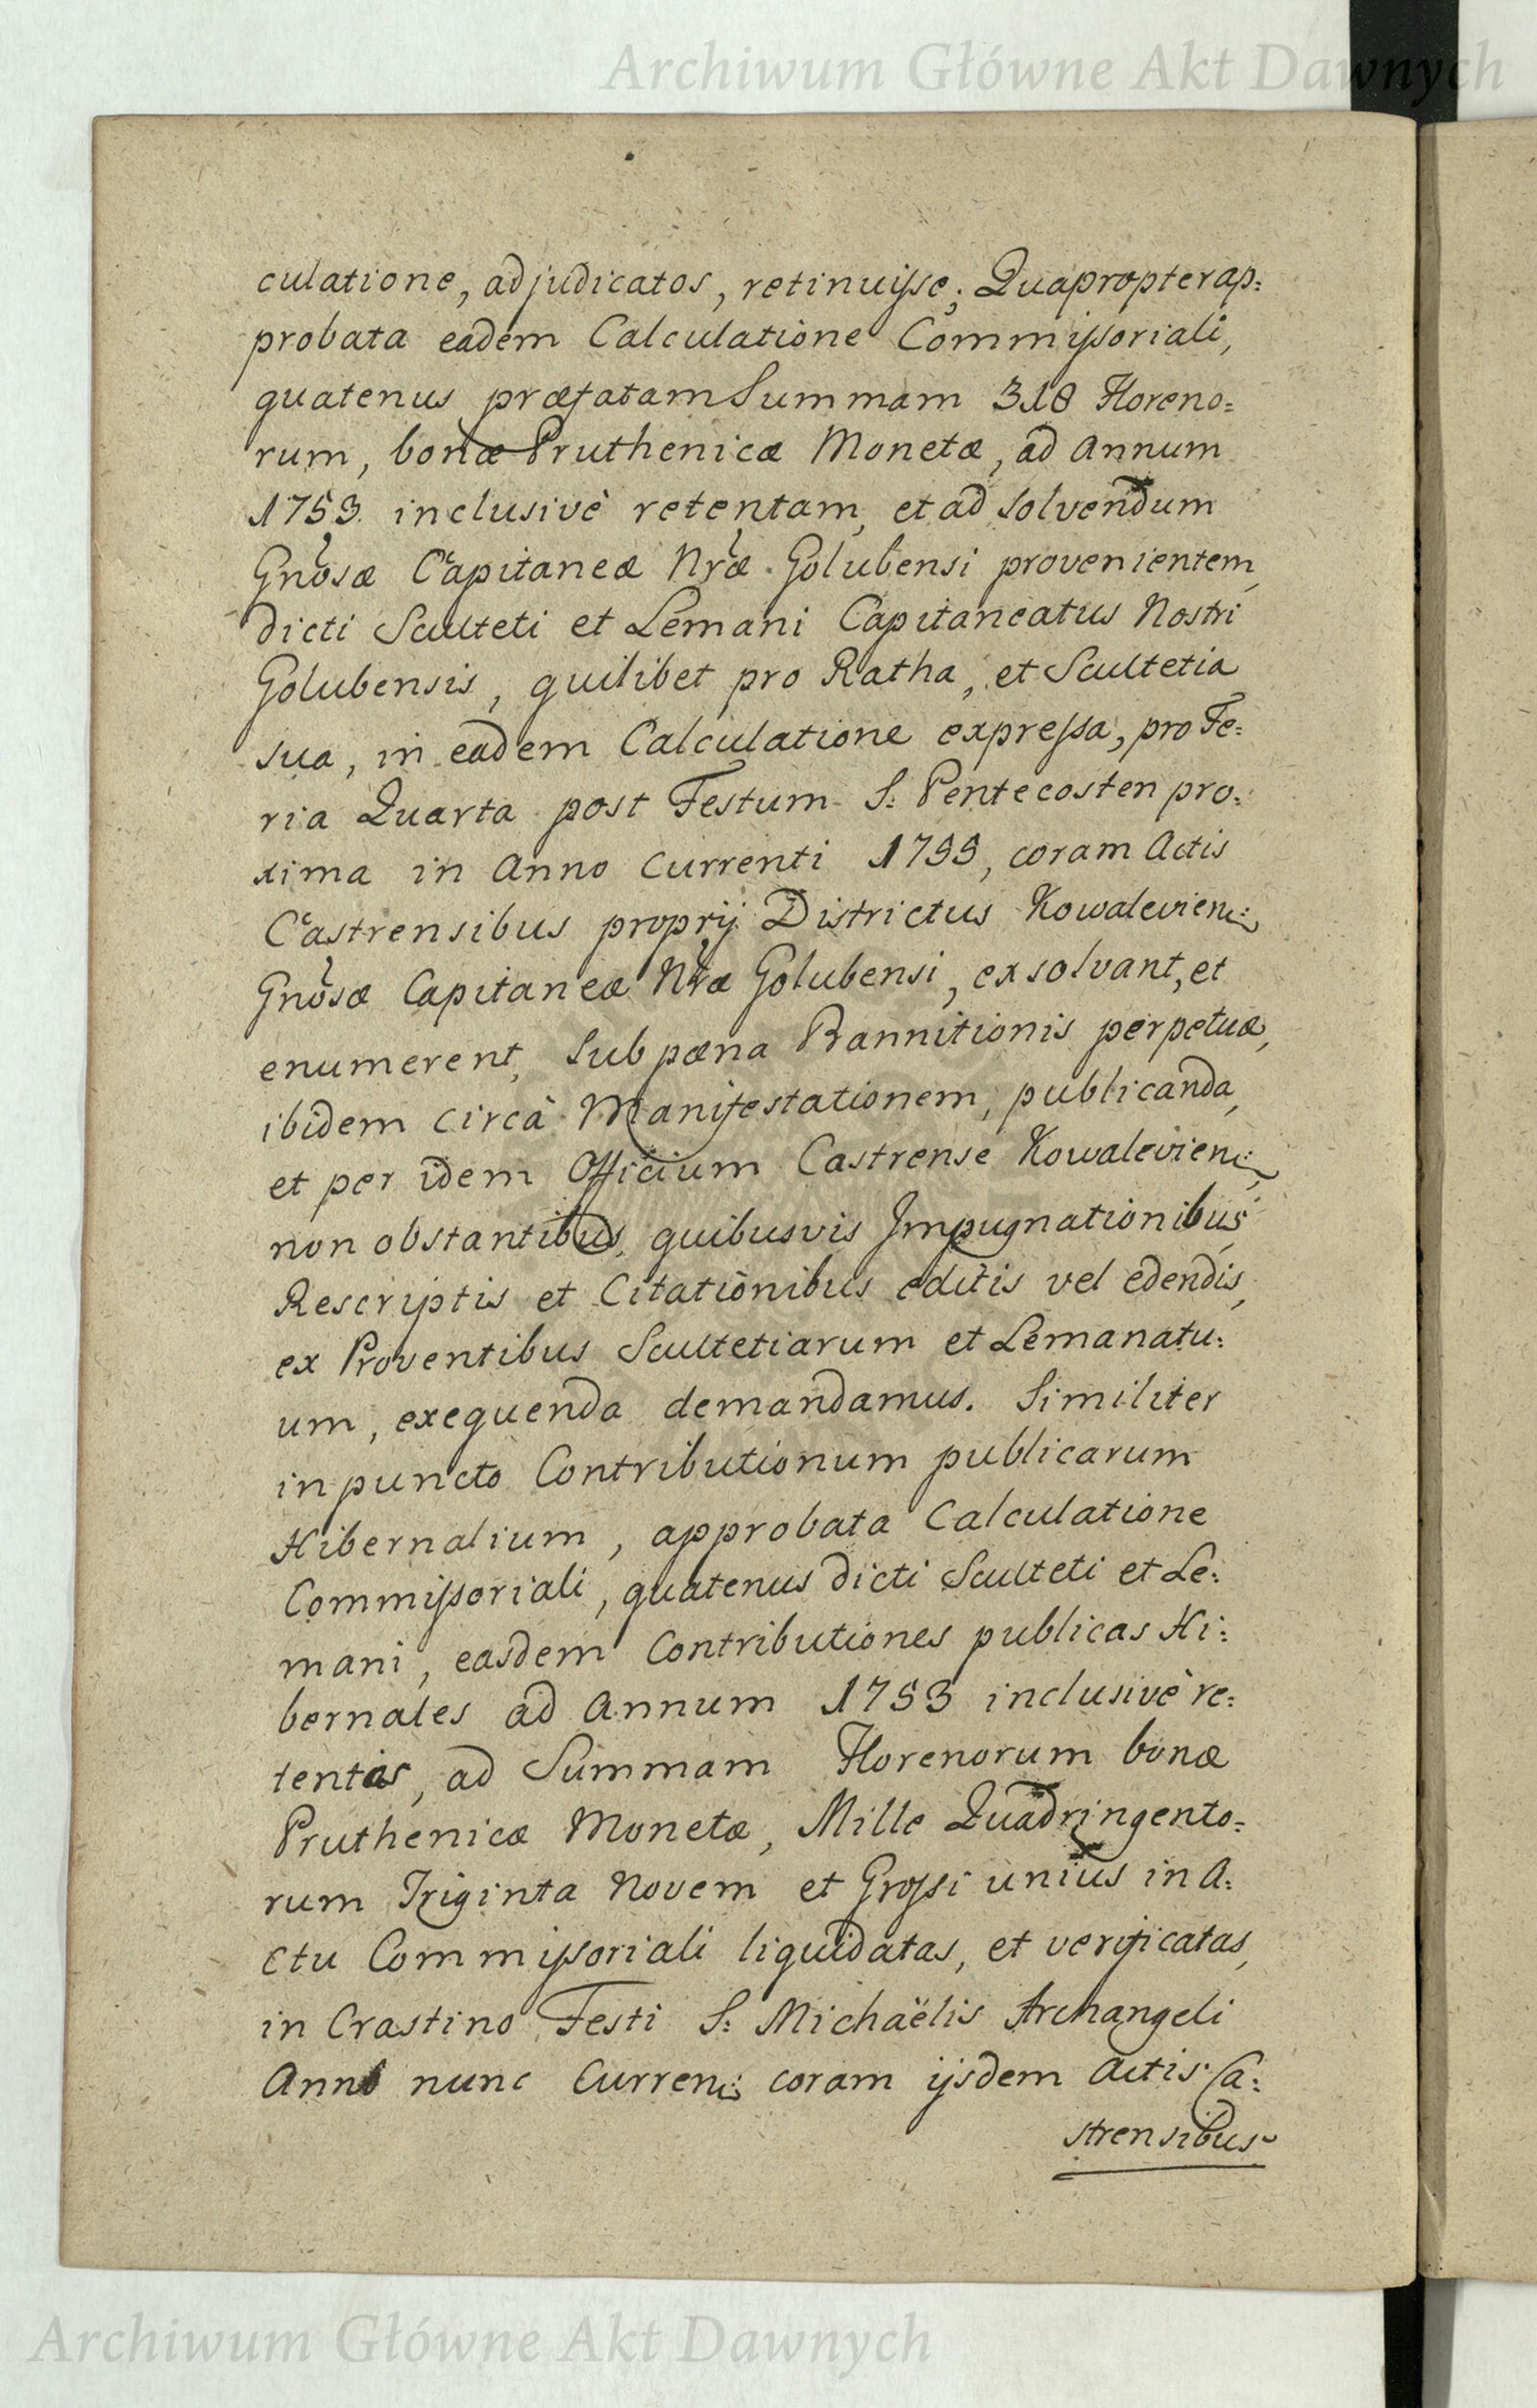 Archiwum Główne Akt Dawnych
culatione, adjudicatos, retinuisse; Quapropter ap=
probata eadem Calculatione Commissoriali,
quatenus præfatam Summam 318 Floreno=
rum, bonæ Pruthenicæ Monetæ, ad Annum
1753. inclusivè retentam, et ad solvendum
Gnosæ Capitaneæ Nræ Golubensi provenientem,
dicti Sculteti et Lemani Capitaneatus Nostri
Golubensis, quilibet pro Ratha, et Scultetia
sua, in eadem Calculatione expressa, pro Fe=
ria Quarta post Festum S: Pentecosten pro=
xima in Anno Currenti 1755, coram Actis
Castrensibus proprij Districtus Kowalevien:
Gnosæ Capitaneæ Nræ Golubensi, exsolvant, et
enumerent, sub pæna Bannitionis perpetuæ,
ibidem circà Manifestationem, publicanda,
et per idem Officium Castrense Kowalevien:
non obstantibus, quibusvis Impugnationibus
Rescriptis et Citationibus editis vel edendis,
ex Proventibus Scultetiarum et Lemanatu=
um, exequenda demandamus. Similiter
in puncto Contributionum publicarum
Hibernalium, approbata Calculatione
Commissoriali, quatenus dicti Sculteti et Le=
mani, easdem Contributiones publicas Hi=
bernales ad Annum 1753 inclusivè re=
tentas, ad Summam Florenorum bonæ
Pruthenicæ Monetæ, Mille Quadringento=
rum Triginta Novem et Grossi unius in A=
ctu Commissoriali liquidatas, et verificatas,
in Crastino Festi S: Michaëlis Archangeli
Anno nunc Curren: coram ijsdem Actis Ca=
strensibus
Archiwum Główne Akt Dawnych